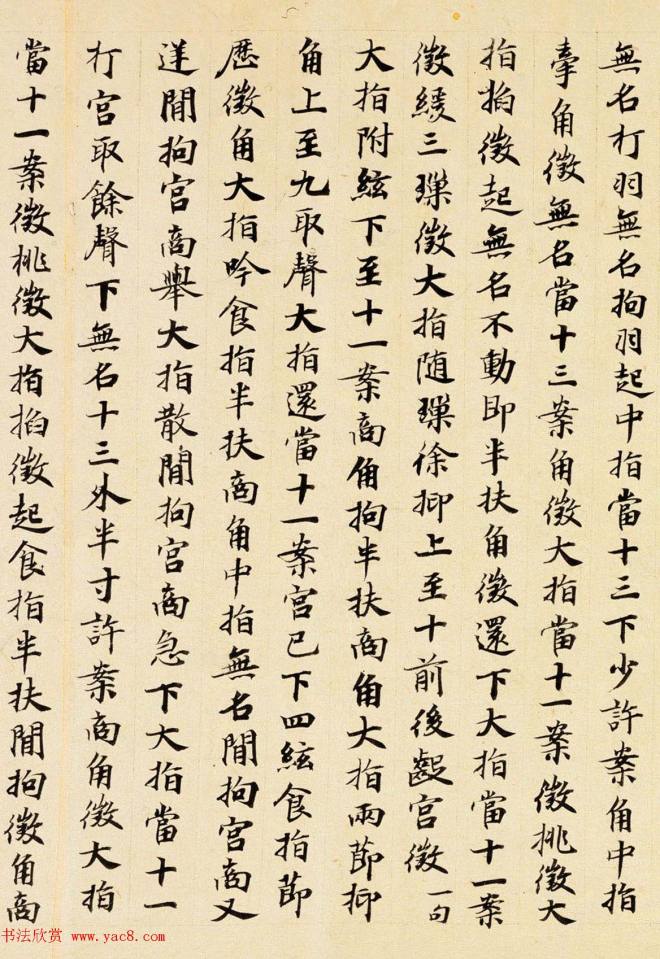 無名打羽無名拘羽起中指當十三下少許案角中指
牽角徵無名當十三案角徵大指當十一案徵挑徵大
指掐徵起無名不動即半扶角徵還下大指當十一案
徵緩三㩵徵大指随㩵徐抑上至十前後齪宮徵一句
大指附絃下至十一案商角拘半扶商角大指兩節抑
角上至九取聲大指還當十一案宮已下四絃食指節
歷徵角大指吟食指半扶商角中指無名間拘宮商又
送間拘宮商舉大指散間拘宮商急下大指當十一
打宮取餘聲下無名十三外半寸許案商角徵大指
當十一案徵挑徵大指掐徵起食指半扶間拘徵角商
书法欣赏 www.yac8.com